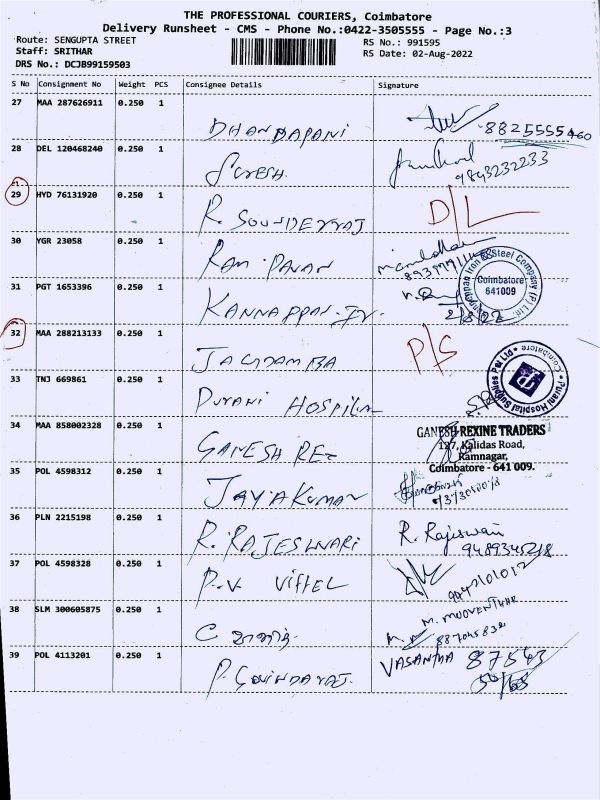 THE PROFESSIONAL COURIERS, Coimbatore
Delivery Runsheet - CMS - Phone No.:0422-3505555 - Page No.:3
Route: SENGUPTA STREET
Staff: SRITHAR
DRS No.: DCJB99159503
RS No.: 991595
RS Date: 02-Aug-2022
S No Consignment No Weight PCS Consignee Details Signature
27 MAA 287626911 0.250 1 DHANDAPANI 8825555460
28 DEL 120468240 0.250 1 SURESH. 9843232233
29 HYD 76131920 0.250 1 R. SOUNDERRAJ D/L
30 YGR 23058 0.250 1 RAM PAVAN
31 PGT 1653396 0.250 1 KANNAPPAN 2/8/22
Kannappan Iron & Steel Company (P) Ltd.
Coimbatore
641 009
32 MAA 288213133 0.250 1 JAGADAMBA P/S
33 TNJ 669861 0.250 1 PURANI HOSPITAL
Purani Hospital Supplies Pvt Ltd. Coimbatore
34 MAA 858002328 0.250 1 GANESH REX
GANESH REXINE TRADERS
127, Kalidas Road,
Ramnagar,
Coimbatore - 641 009.
35 POL 4598312 0.250 1 JAYAKUMAR
36 PLN 2215198 0.250 1 R. RAJESWARI R. Rajeswari
37 POL 4598328 0.250 1 P.V. VITTEL
38 SLM 300605875 0.250 1 C M. MOOVENTHAR
39 POL 4113201 0.250 1 P. GOVINDARAJ. VASANTHA 87543